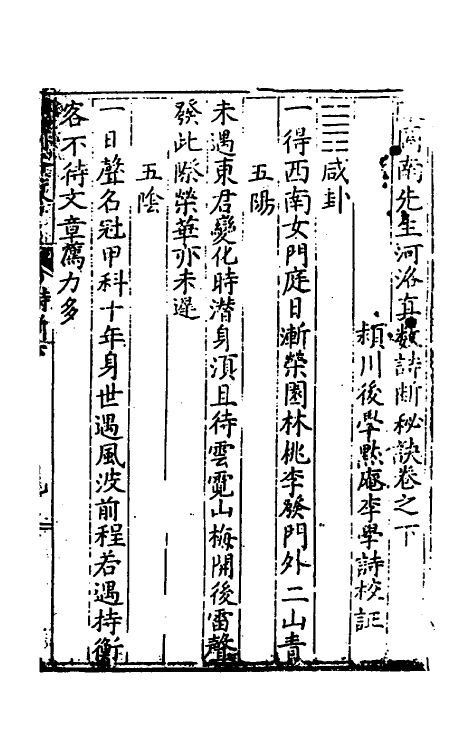 周南先生河洛真数詩断秘訣卷之下
頴川後學㸃處李學詩校証
䷞咸卦
一得西南女門庭日漸榮園林桃李發門外二山青
五陽
未遇東君變化時潛身湏且待雲霓山梅開後雷聲
發此際榮華亦未遲
五陰
一日聲名冠甲科十年身世遇風波前程若遇持衡
客不待文章薦力多